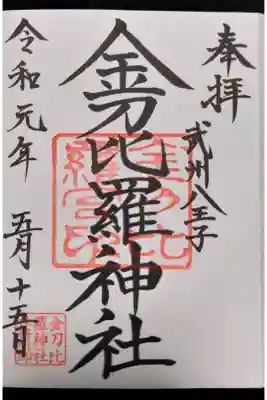 奉拝
武州八王子
金刀比羅神社
令和元年 五月十五日
金刀比
羅神社